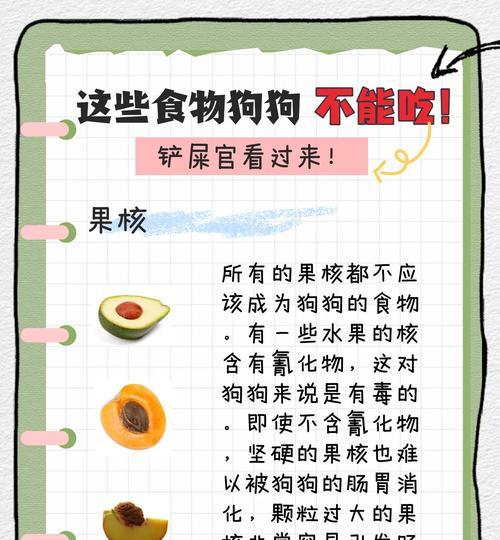 这些食物狗狗 不能吃!
铲屎官看过来!
果核
所有的果核都不应
该成为狗狗的食物
。有一些水果的核
含有氰化物，这对
狗狗来说是有毒的
。即使不含氰化物
，坚硬的果核也难
以被狗狗的肠胃消
化，颗粒过大的果
核非常容易引发肠